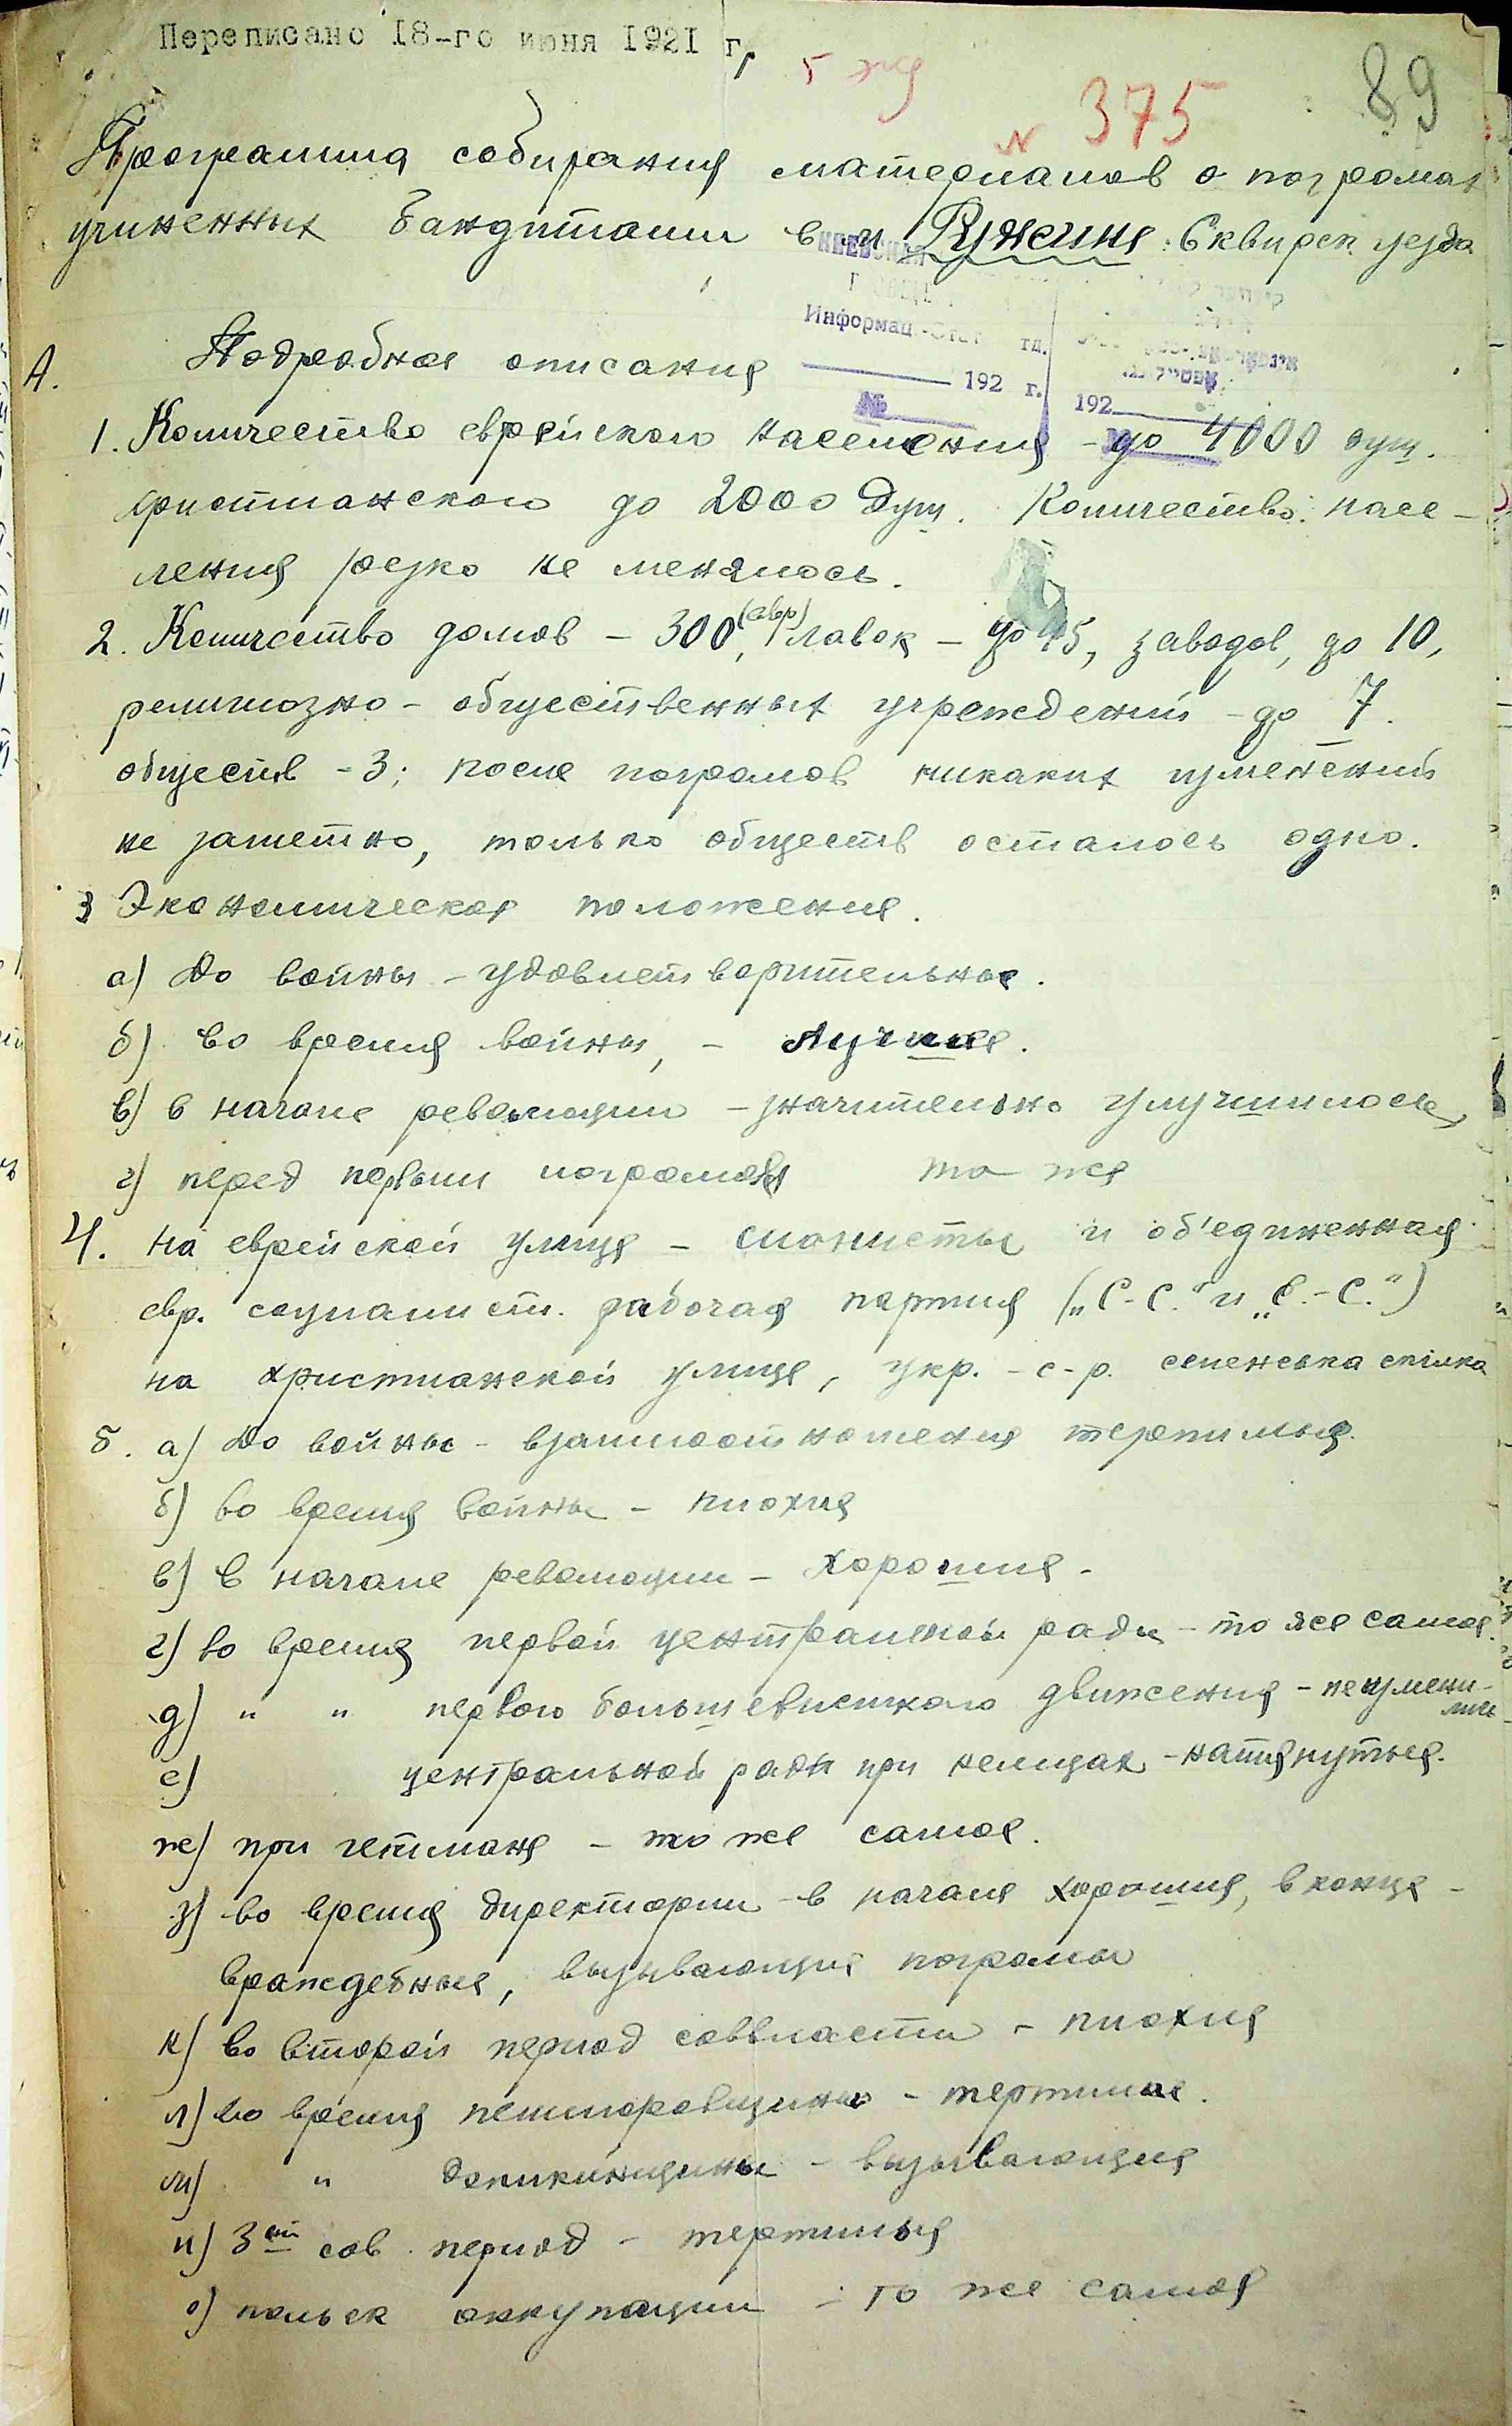 Переписано 18-го июня 1921 г,
5
N 375
89
Программа собирания материалов о погромах
учиненных бандитами в м Ружине Сквирск уезда
КИЕВСКАЯ
Информац.-Стат тд.
192 г.
№
192
А. Подробное описания
1. Количество еврейского населения - до 4000 душ.
христианского до 2000 душ. Количество насе-
ления резко не менялось.
2. Количество домов - 300, (евр) лавок - до 45, заводов, до 10,
религиозно - общественных учреждений - до 7.
обществ - 3; после погромов никаких изменений
не заметно, только обществ осталось одно.
3 Экономическое положения.
а) до войны - удовлетворительное.
б) во время войны, - лучшее.
в) в начале революции - значительно улучшилось
г) перед первым погромом то же
4. на еврейской улице - сионисты и об'единенная
евр. социалист. рабочая партия („С-С." и „Е.-С.")
на христианской улице, укр. - с-р. селенська спілка
5. а) до войны - взаимоотношения терпимые.
б) во время войны - плохие
в) в начале революции - хорошие -
г) во время первой центральной рады - то же самое.
д) " " первого большевистского движения - не измени-
лись
е) центральной рады при немцах - натянутые.
ж) при гетмане - то же самое.
з) во время директории - в начале хорошие, в конце -
враждебные, вызывающие погромы
к) во второй период соввласти - плохие
л) во время петлюровщины - терпимые.
м) " деникинщины - вызывающие
н) 3ий сов. период - терпимые
о) польск оккупации - то же самое